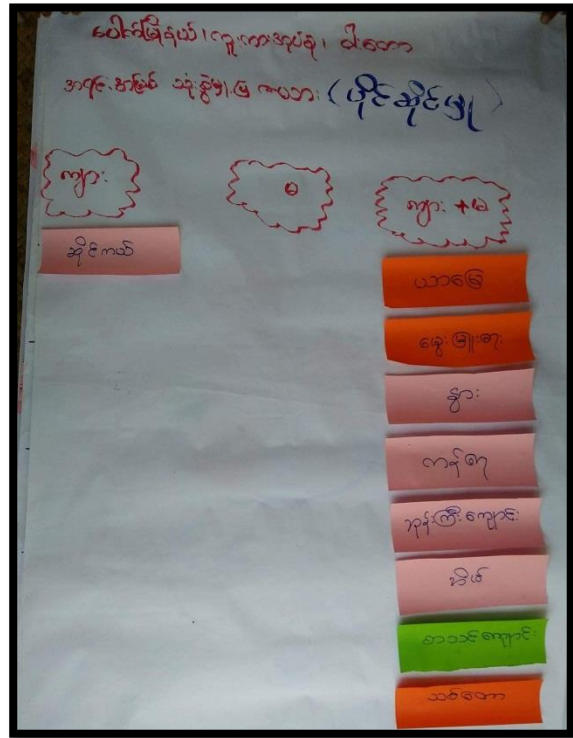 ပေါက်မြို့နယ်၊ ကူးကားအုပ်စု၊ ဝါးတော
အရင်းအမြစ် သုံးစွဲမှုပြ ဇယား (ပိုင်ဆိုင်မှု)
ကျား
မ
ကျား + မ
ဆိုင်ကယ်
ယာမြေ
မွေးမြူရေး
နွား
ကန်ရေ
ဘုန်းကြီးကျောင်း
အိမ်
စာသင်ကျောင်း
သစ်တော